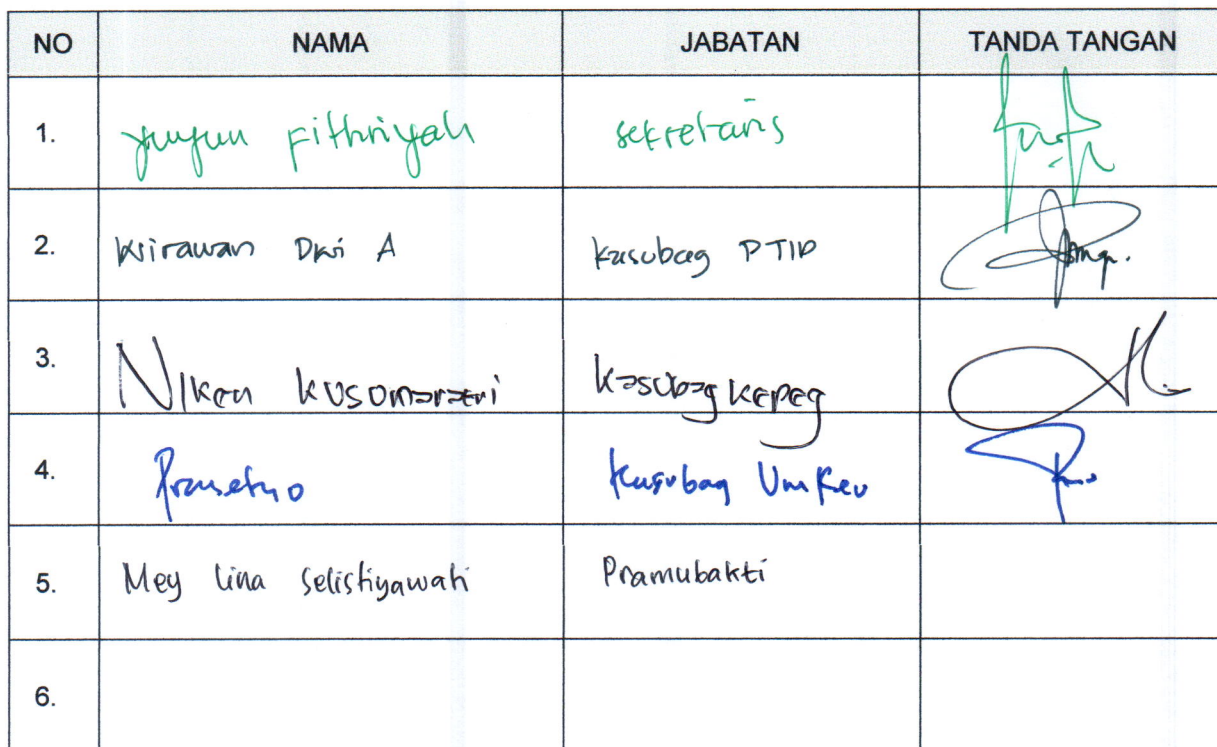 NO NAMA JABATAN TANDA TANGAN
1. Yuyun Fithriyah sekretaris
2. Wirawan Dwi A Kasubag PTIP
3. Niken Kusumaratri Kasubag Kepeg
4. Prasetyo Kasubag Um Keu
5. Mey Lina Selistiyawati Pramubakti
6.